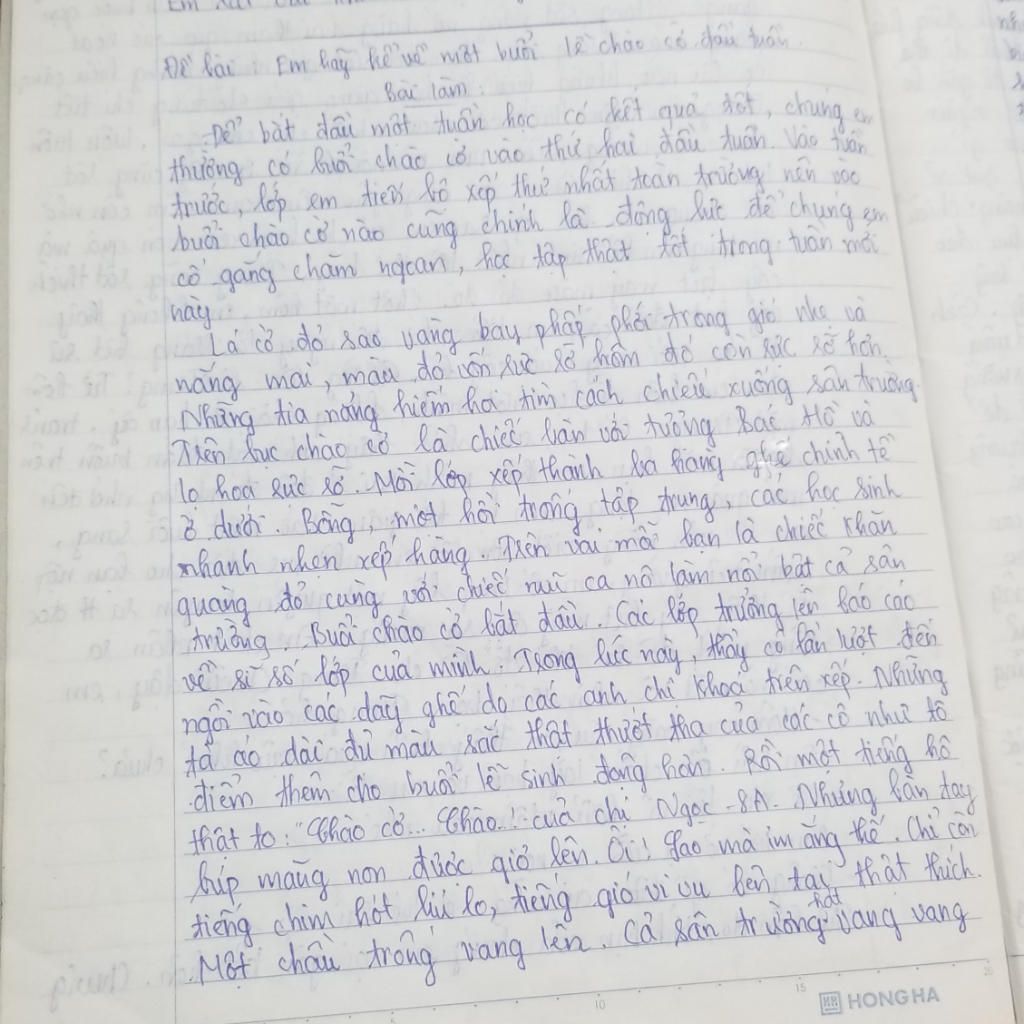 Đề bài: Em hãy kể về một buổi lễ chào cờ đầu tuần.
Bài làm:
Để bắt đầu một tuần học có kết quả tốt, chúng em
thường có buổi chào cờ vào thứ hai đầu tuần. Vào tuần
trước, lớp em tiến bộ xếp thứ nhất toàn trường nên vào
buổi chào cờ nào cũng chính là động lực để chúng em
cố gắng chăm ngoan, học tập thật tốt trong tuần mới
này.
Lá cờ đỏ sao vàng bay phấp phới trong gió nhẹ và
nắng mai, màu đỏ vốn sực sỡ hôm đó còn sực sỡ hơn.
Những tia nắng hiếm hoi tìm cách chiếu xuống sân trường.
Trên bục chào cờ là chiếc bàn với tượng Bác Hồ và
lọ hoa sực sỡ. Mỗi lớp xếp thành ba hàng ghế chỉnh tề
ở dưới. Bỗng, một hồi trống tập trung, các học sinh
nhanh nhẹn xếp hàng. Trên vai mỗi bạn là chiếc khăn
quàng đỏ cùng với chiếc mũ ca nô làm nổi bật cả sân
trường. Buổi chào cờ bắt đầu. Các lớp trưởng lên báo cáo
về sĩ số lớp của mình. Trong lúc này, thầy cô lần lượt đến
ngồi vào các dãy ghế do các anh chị khoá trên xếp. Những
tà áo dài đủ màu sắc thật thướt tha của các cô như tô
điểm thêm cho buổi lễ sinh động hơn. Rồi một tiếng hô
thật to: "Chào cờ... Chào... của chị Ngọc - 8A. Những bàn tay
búp măng non được giơ lên. Ôi! Sao mà im ắng thế. Chỉ còn
tiếng chim hót líu lo, tiếng gió vi vu bên tai thật thích.
Một chầu trống vang lên. Cả sân trường hát vang vang
5
10
15
20
HH HONG HA